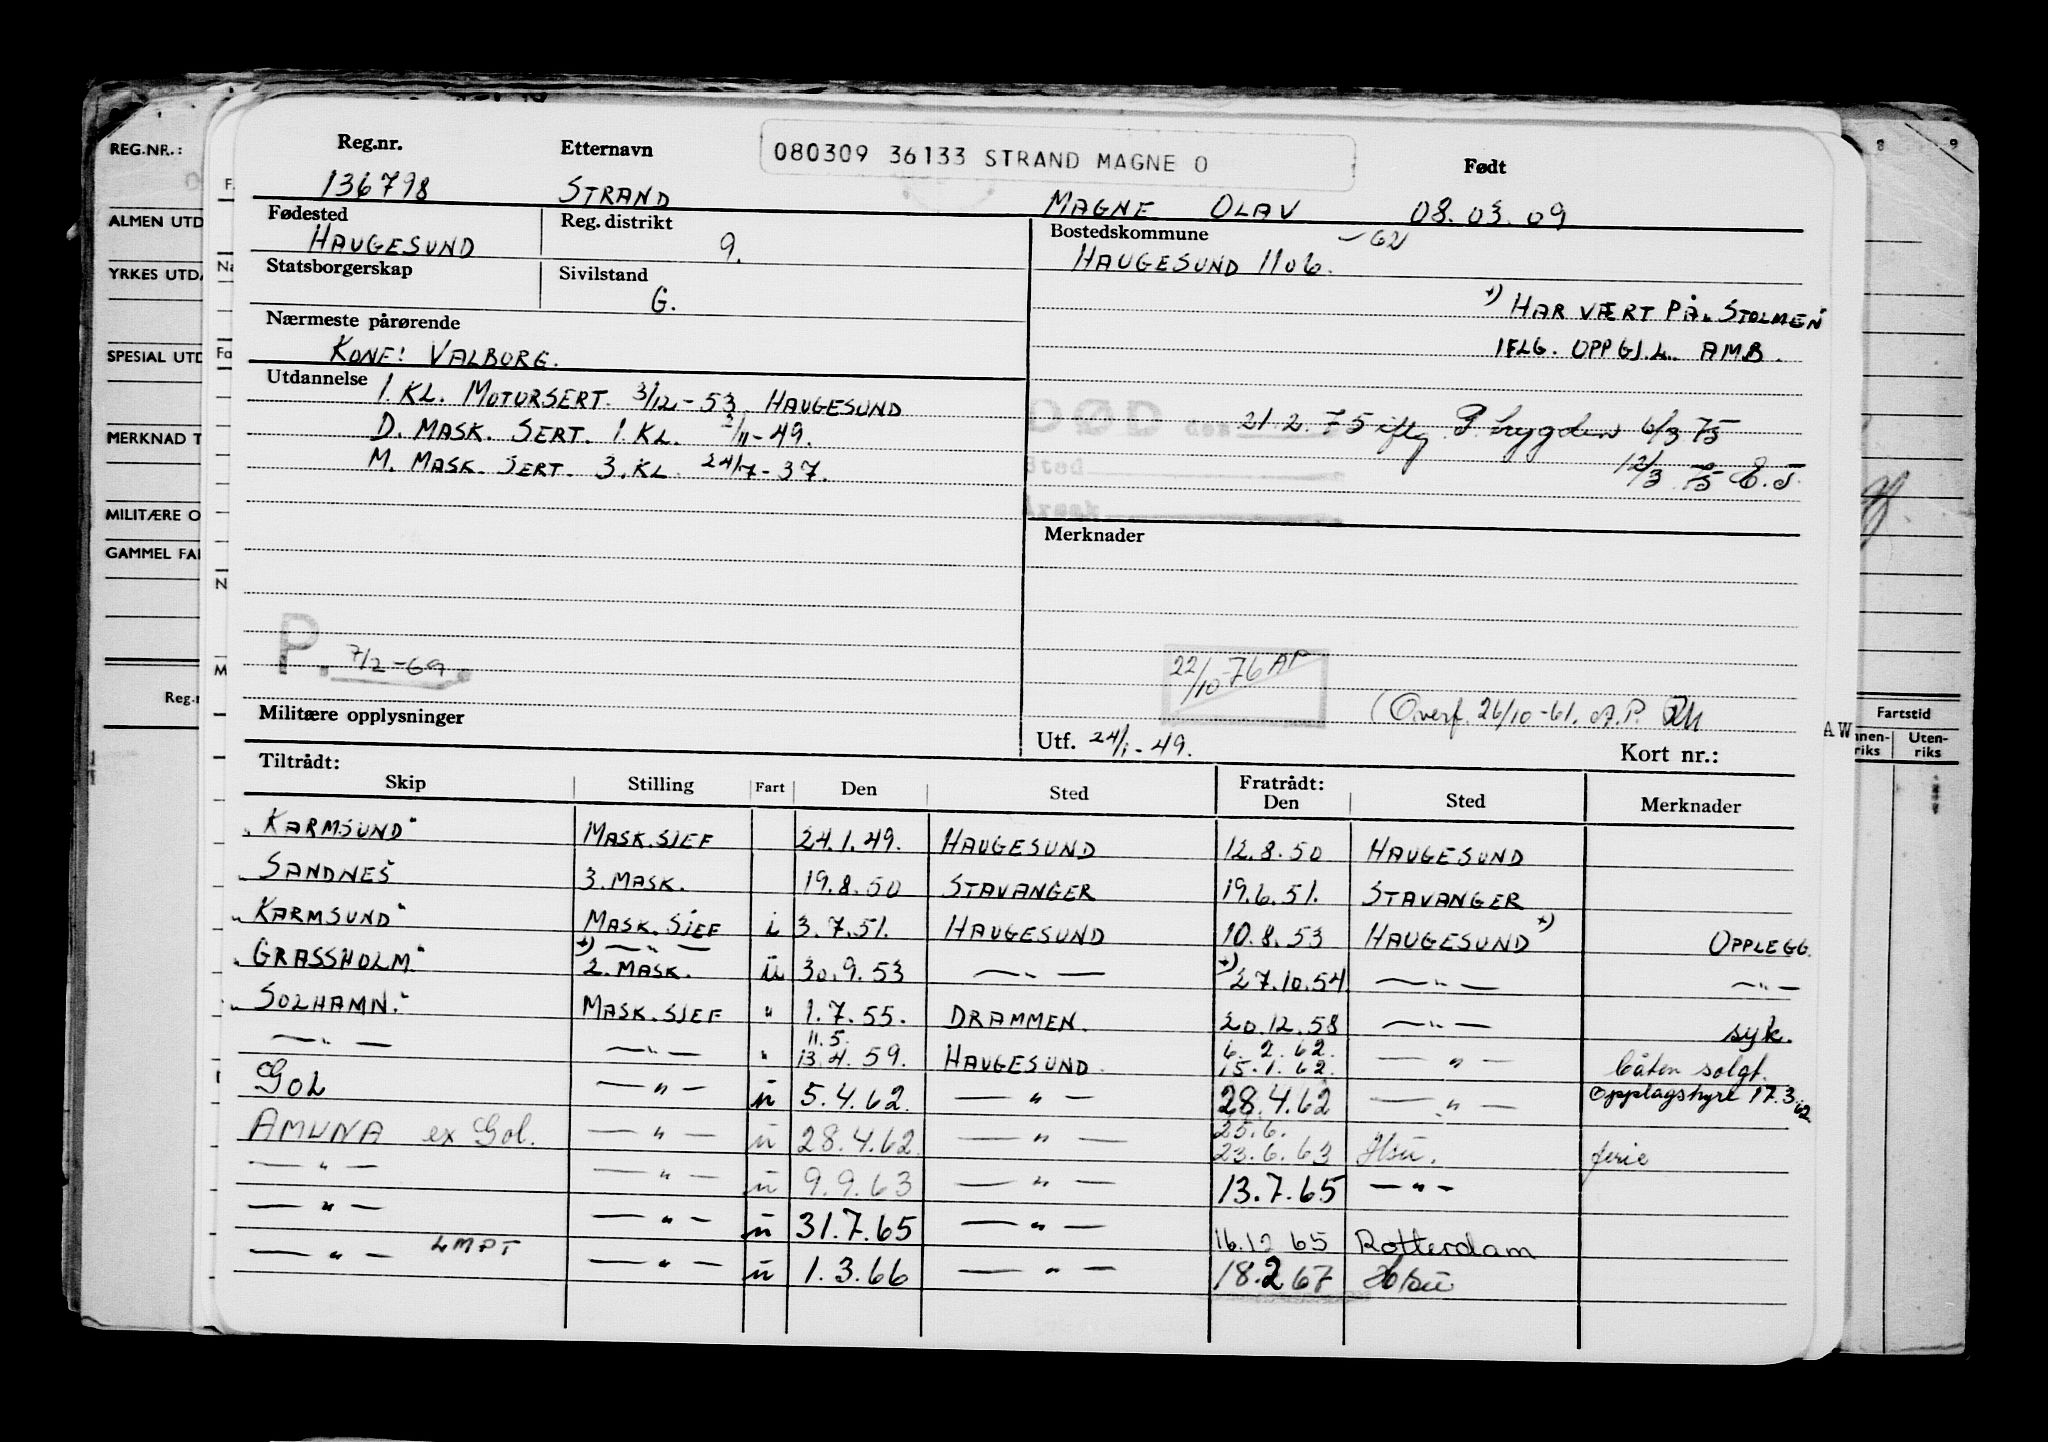 080309 36133 STRAND MAGNE O
Reg.nr. Etternavn Født
136798 STRAND MAGNE OLAV 08.03.09
Fødested Reg. distrikt Bostedskommune
HAUGESUND 9. HAUGESUND 1106. -62
Statsborgerskap Sivilstand
G.
*) HAR VÆRT PÅ "STOLMEN"
IFLG. OPPGJ. L. AMB.
Nærmeste pårørende
KONE: VALBORG.
Utdannelse 1. KL. MOTORSERT. 3/12-53 HAUGESUND
D. MASK. SERT. 1. KL. 2/11-49.
M. MASK. SERT. 3. KL. 24/7-37.
DØD den 21.2.75 iflg. P. trygden 6/3 75
Sted 12/3 75 E.T.
Årsak
Merknader
P. 7/2-69.
22/10-76 AP
(Overf. 26/10-61. A.P.
Militære opplysninger
Utf. 24/1-49. Kort nr.:
Tiltrådt: Fratrådt:
Skip Stilling Fart Den Sted Den Sted Merknader
"KARMSUND" MASK.SJEF 24.1.49. HAUGESUND 12.8.50 HAUGESUND
"SANDNES" 3. MASK. 19.8.50 STAVANGER 19.6.51. STAVANGER
"KARMSUND" MASK.SJEF i 3.7.51. HAUGESUND 10.8.53 HAUGESUND *) OPPLEGG.
"GRASSHOLM" *) —"— 2. MASK. u 30.9.53 —"— *) 27.10.54 —"— —"—
"SOLHAMN" MASK.SJEF " 1.7.55. DRAMMEN. 20.12.58 —"— syk.
—"— —"— " 11.5. 13.4.59. HAUGESUND. 6.2.62. 15.1.62. —"— båten solgt.
GOL —"— u 5.4.62. —"— 28.4.62 —"— Opplagshyre 17.3.62
AMUNA ex Gol. —"— u 28.4.62 —"— 25.6. 23.6.63 Hsu. ferie
—"— —"— u 9.9.63 —"— 13.7.65 —"—
—"— —"— u 31.7.65 —"— 16.12 65 Rotterdam
—"— LMPT —"— u 1.3.66 —"— 18.2 67 Hsu
REG.NR.:
ALMEN UTD
YRKES UTDA
SPESIAL UTD
MERKNAD T
MILITÆRE O
GAMMEL FA
Reg.n
8 9
AW
Fartstid
nnen-riks Uten-riks